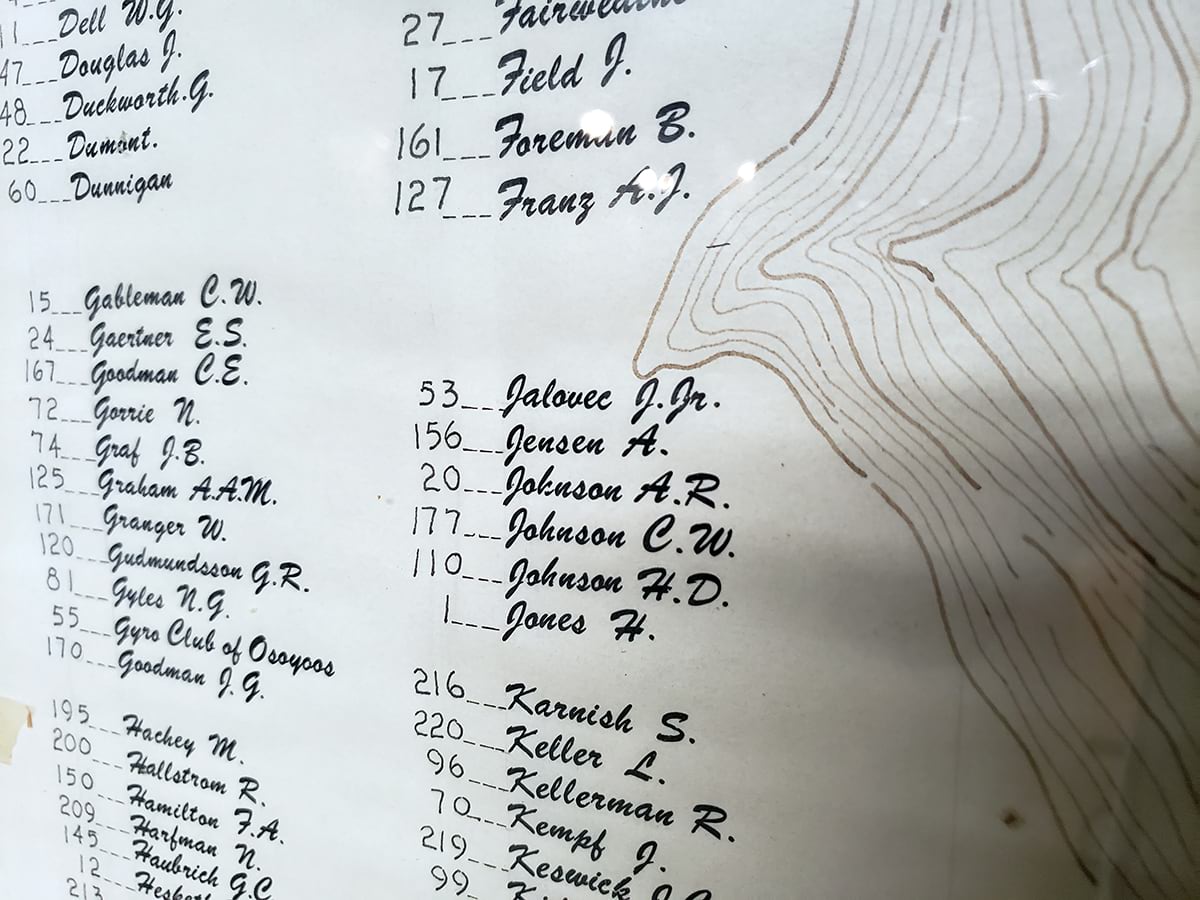 11___Dell W.G.
47___Douglas J.
48___Duckworth.G.
22___Dumont.
60___Dunnigan
15___Gableman C.W.
24___Gaertner E.S.
167___Goodman C.E.
72___Gorrie N.
74___Graf J.B.
125___Graham A.A.M.
171___Granger W.
120___Gudmundsson G.R.
81___Gyles N.G.
55___Gyro Club of Osoyoos
170___Goodman J.G.
195___Hachey M.
200___Hallstrom R.
150___Hamilton F.A.
209___Harfman N.
145___Haubrich G.C
12___
213
27___
17___Field J.
161___Foreman B.
127___Franz A.J.
53___Jalovec J.Jr.
156___Jensen A.
20___Johnson A.R.
177___Johnson C.W.
110___Johnson H.D.
1___Jones H.
216___Karnish S.
220___Keller L.
96___Kellerman R.
70___Kempf J.
219___Keswick
99___